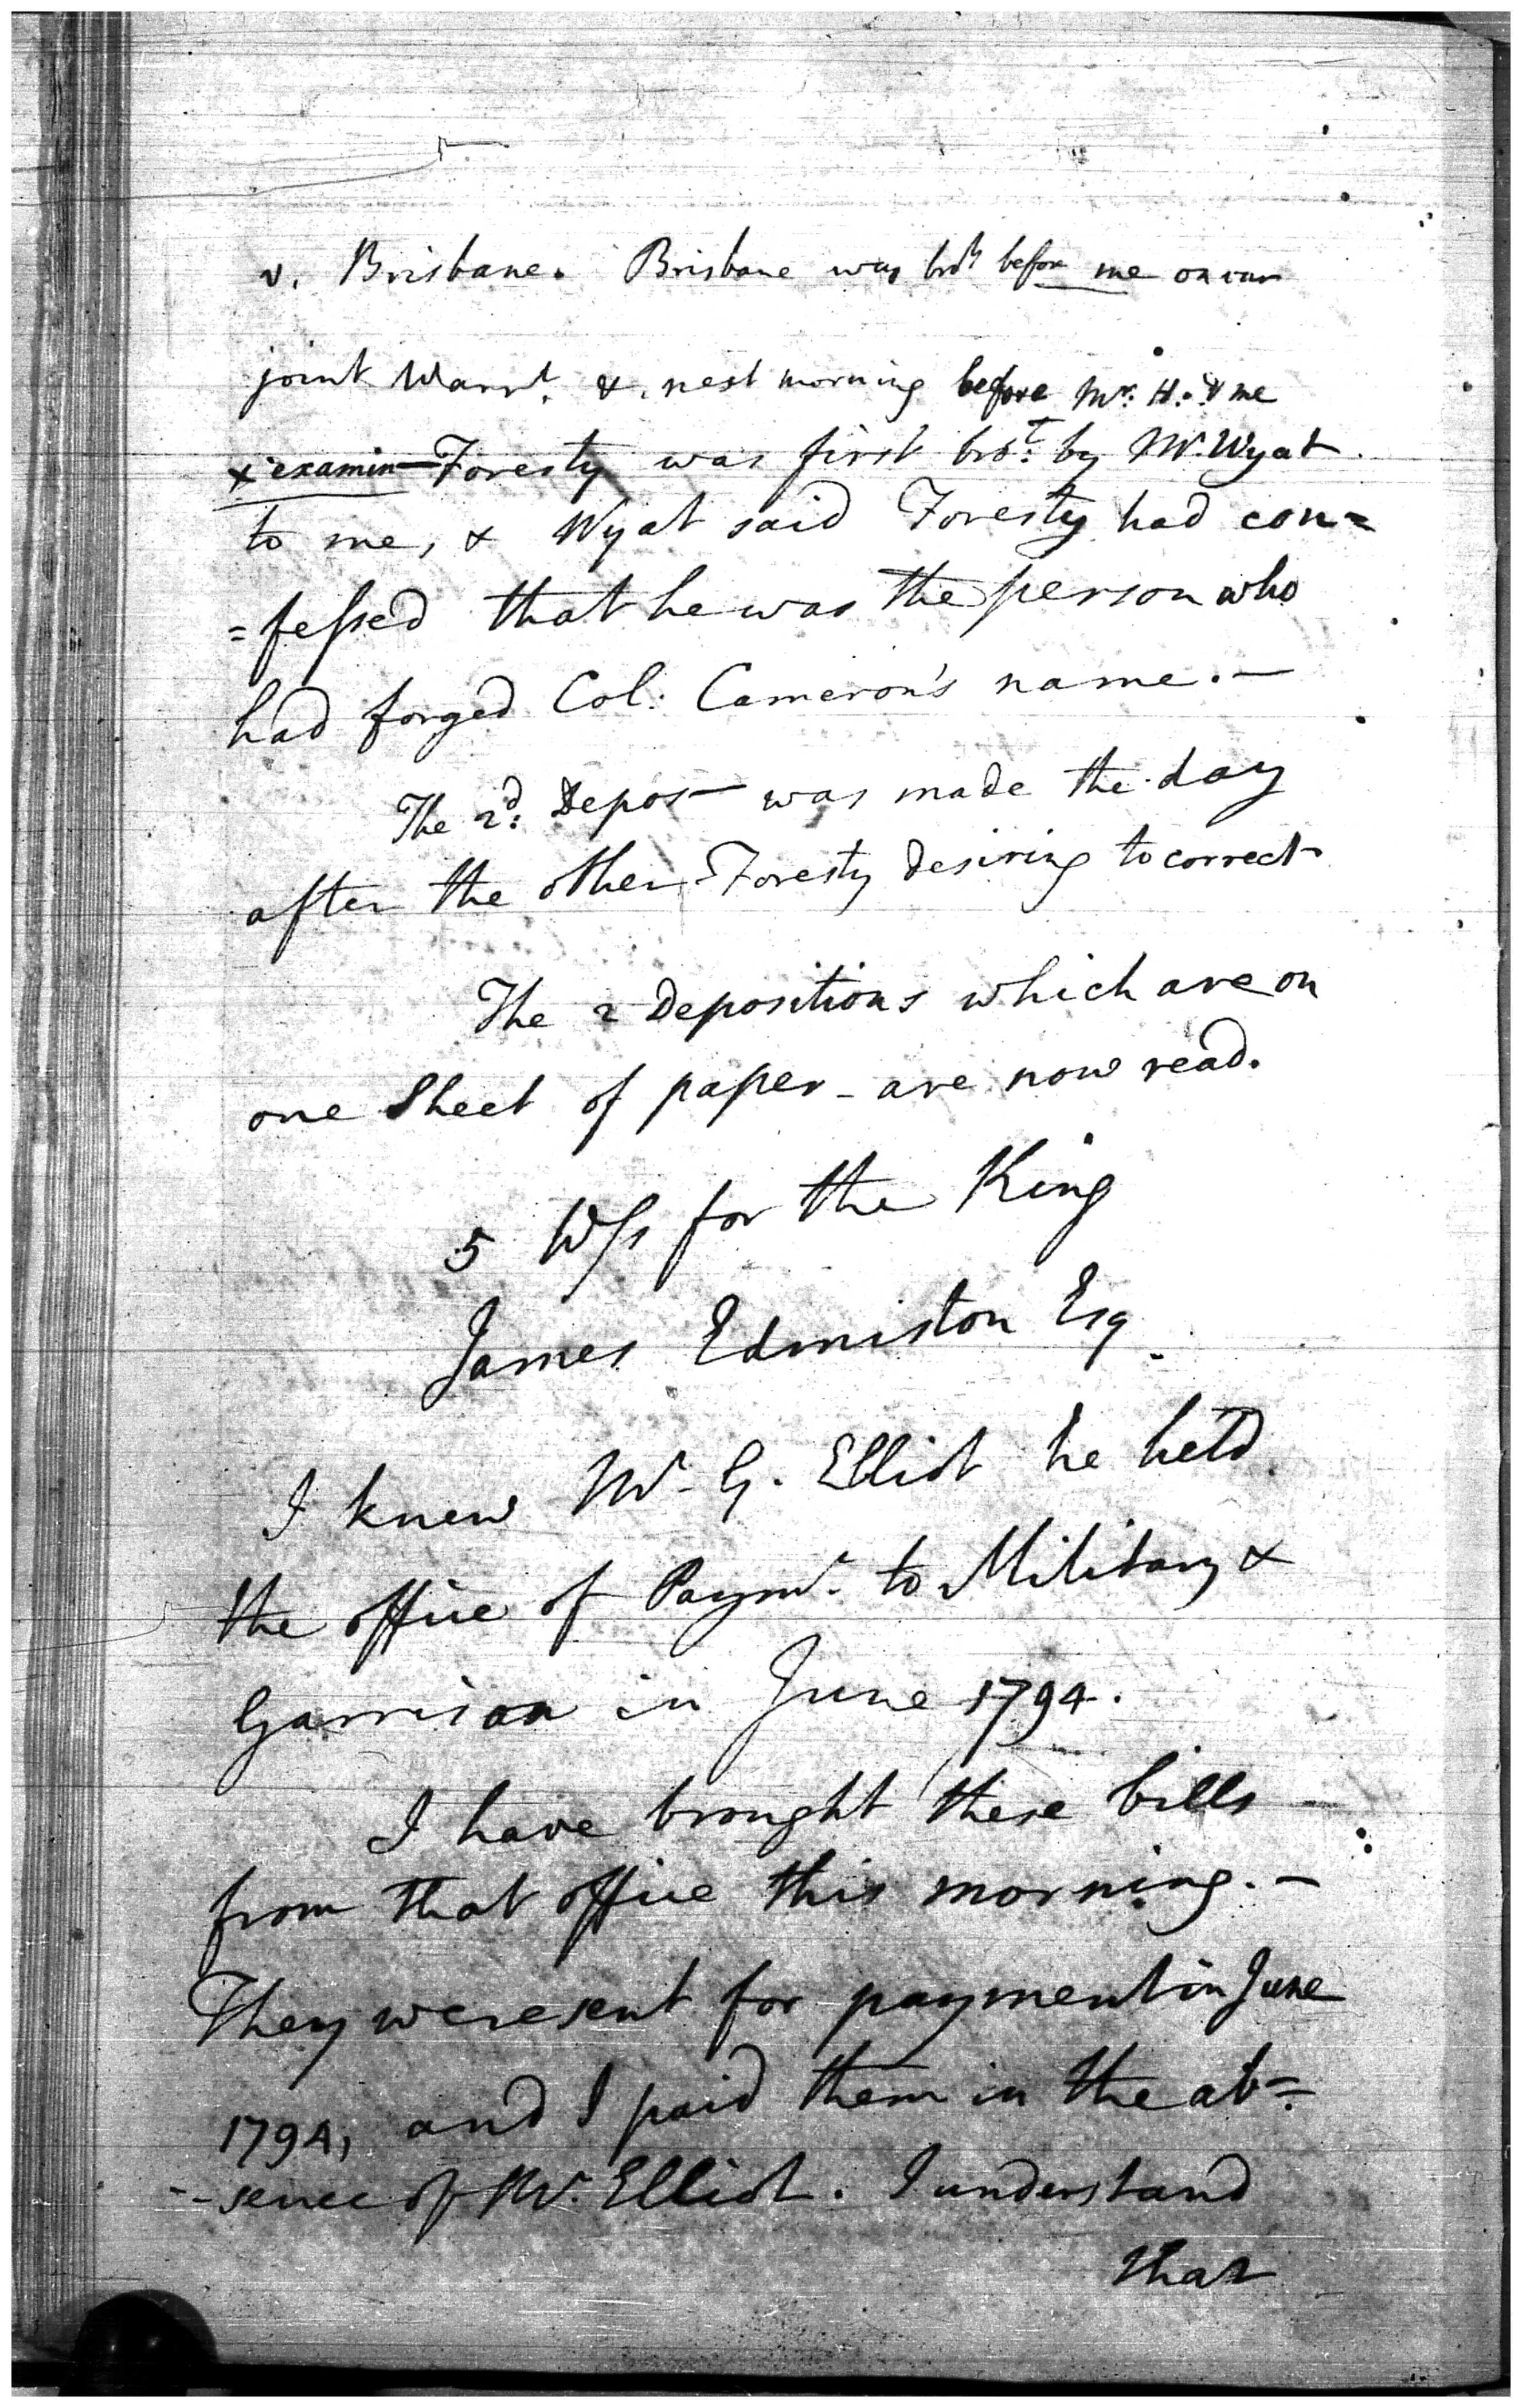 v. Brisbane. Brisbane was brot before me on our
joint Warrt. & next morning before Mr. H. & me
x examin— Foresty was first brot. by Mr. Wyat
to me, & Wyat said Foresty had con=
=fessed that he was the person who
had forged Col: Cameron's name. —
The 2d. Depos— was made the day
after the other Foresty desiring to correct
The 2 Depositions which are on
one Sheet of paper – are now read.
5 Wss for the King
James Edmiston Esq
I knew Mr. G. Elliot he held
the office of Paymr. to Military &
Garrison in June 1794.
I have brought these bills
from that office this morning. —
They were sent for payment in June
1794, and I paid them in the ab=
=sence of Mr. Elliot. I understand
that